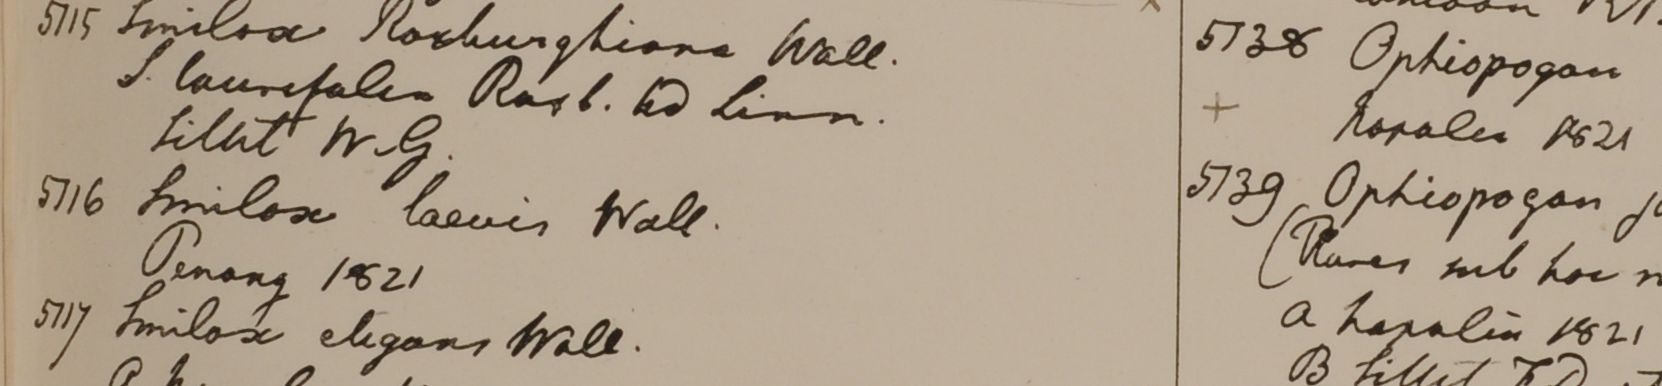 5715 Smilax Roxburghiana Wall.
S. laurifolia Roxb. Ed Linn.
Sillet W.G.
5716 Smilax laevis Wall.
Penang 1821
5717 Smilax elegans Wall.
5738 Ophiopogon
+ Napalia 1821
5739 Ophiopogon
sub hoc
a Napalia 1821
B Sillet